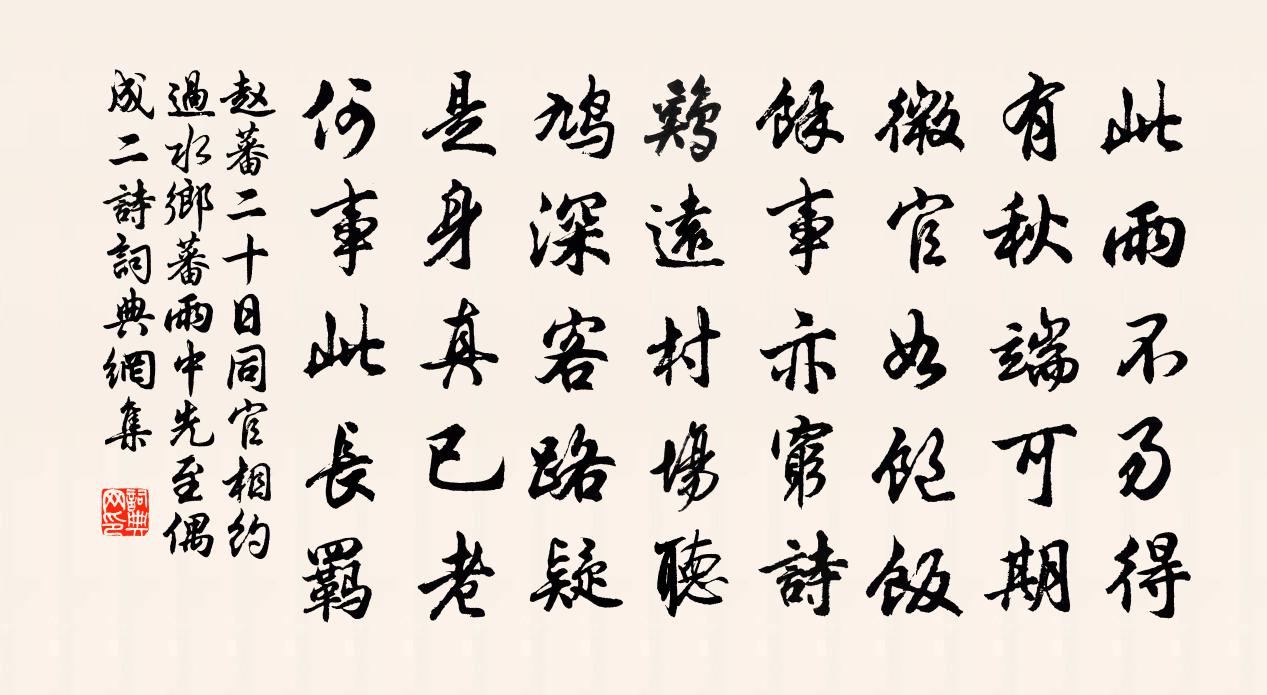 此雨不易得
有秋端可期
微官如飽飯
餘事亦窮詩
鷄遠村場聽
鳩深客路疑
是身真已老
何事此長羈
赵蕃二十日同官相約
過水鄉蕃雨中先至偶
成二詩詞典網集
詞典网印